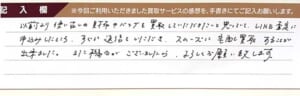 記入欄 ※今回ご利用いただきました買取サービスの感想を、手書きにてご記入お願いします。
以前より使い古の財布やバッグを買取していただきたいと思っていて、LINE査定に
申込みしたところ、すぐに返信もいただき、スムーズに売却買取することが
出来ました。また機会がございましたら、よろしくお願い致します